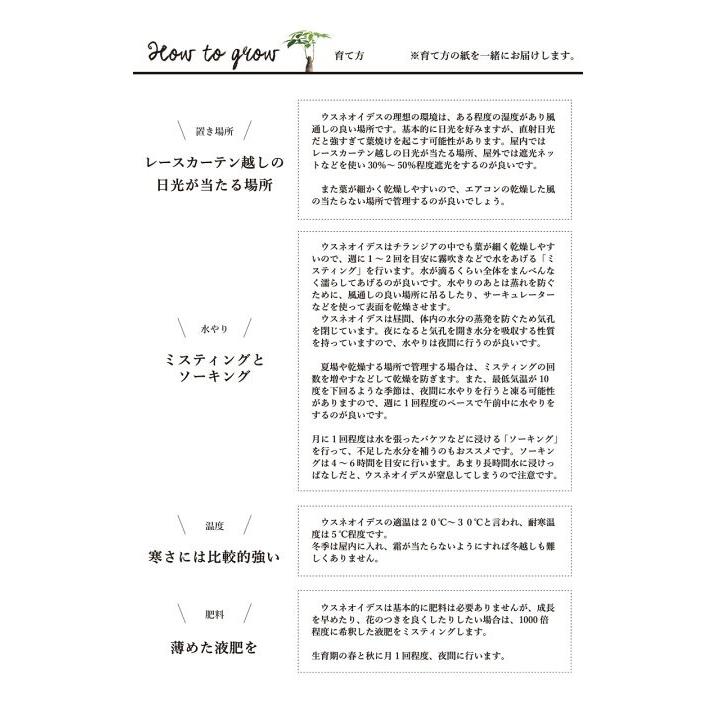 How to grow
育て方
※育て方の紙を一緒にお届けします。
置き場所
レースカーテン越しの
日光が当たる場所
ウスネオイデスの理想の環境は、ある程度の湿度があり風
通しの良い場所です。基本的に日光を好みますが、直射日光
だと強すぎて葉焼けを起こす可能性があります。屋内では
レースカーテン越しの日光が当たる場所、屋外では遮光ネッ
トなどを使い 30%～ 50%程度遮光をするのが良いです。
また葉が細かく乾燥しやすいので、エアコンの乾燥した風
の当たらない場所で管理するのが良いでしょう。
水やり
ミスティングと
ソーキング
ウスネオイデスはチランジアの中でも葉が細く乾燥しやす
いので、週に１～２回を目安に霧吹きなどで水をあげる「ミ
スティング」を行います。水が滴るくらい全体をまんべんな
く濡らしてあげるのが良いです。水やりのあとは蒸れを防ぐ
ために、風通しの良い場所に吊るしたり、サーキュレーター
などを使って表面を乾燥させます。
ウスネオイデスは昼間、体内の水分の蒸発を防ぐため気孔
を閉じています。夜になると気孔を開き水分を吸収する性質
を持っていますので、水やりは夜間に行うのが良いです。
夏場や乾燥する場所で管理する場合は、ミスティングの回
数を増やすなどして乾燥を防ぎます。また、最低気温が 10
度を下回るような季節は、夜間に水やりを行うと凍る可能性
がありますので、週に１回程度のペースで午前中に水やりを
するのが良いです。
月に１回程度は水を張ったバケツなどに浸ける「ソーキング」
を行って、不足した水分を補うのもおススメです。ソーキン
グは４～６時間を目安に行います。あまり長時間水に浸けっ
ぱなしだと、ウスネオイデスが窒息してしまうので注意です。
温度
寒さには比較的強い
ウスネオイデスの適温は２０℃～３０℃と言われ、耐寒温
度は５℃程度です。
冬季は屋内に入れ、霜が当たらないようにすれば冬越しも難
しくありません。
肥料
薄めた液肥を
ウスネオイデスは基本的に肥料は必要ありませんが、成長
を早めたり、花のつきを良くしたりしたい場合は、1000 倍
程度に希釈した液肥をミスティングします。
生育期の春と秋に月１回程度、夜間に行います。